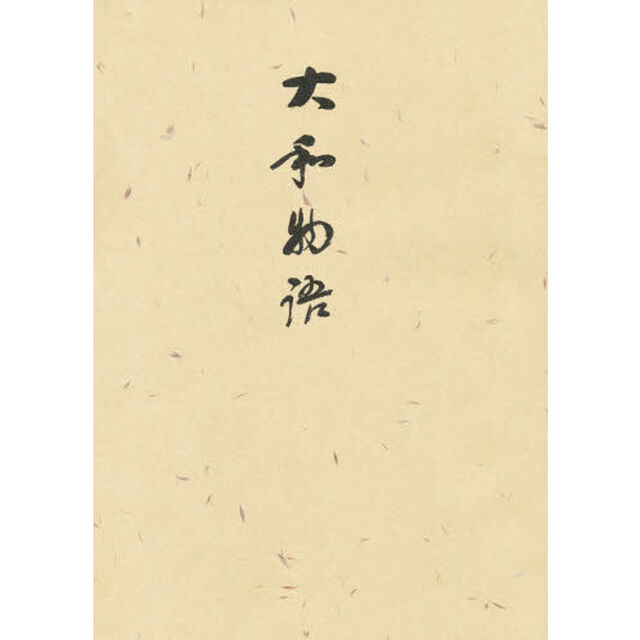 大和物語